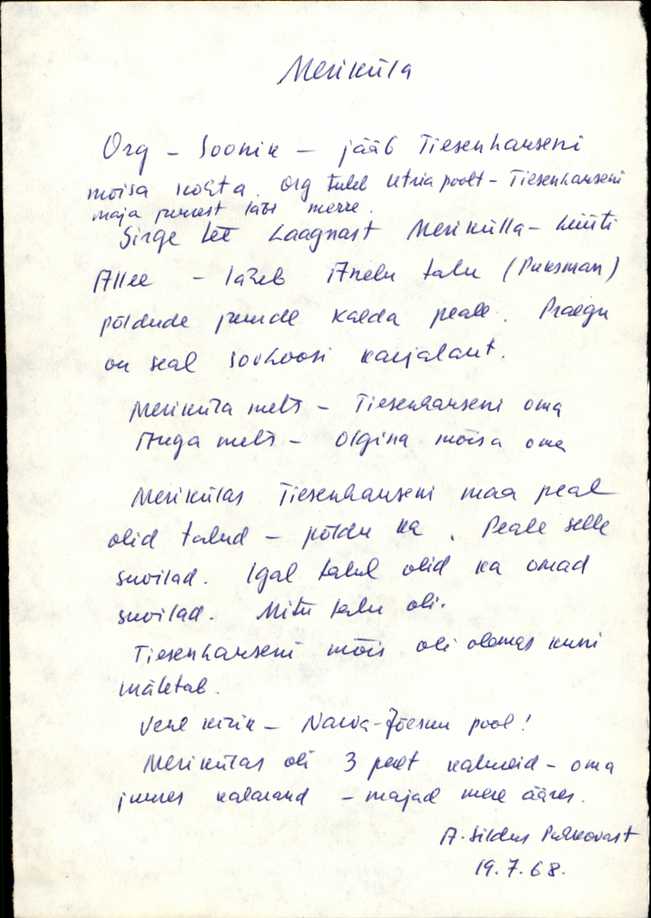 Meriküla
Org – Soonik – jääb Tiesenhauseni
mõisa kohta. Org tuleb Utria poolt – Tiesenhauseni
maja juurest läbi merre.
Sirge tee Laagnast Merikülla – hüüti
Allee – läheb Aneli talu (Puksman)
põldude juurde kalda peale. Praegu
on seal sovhoosi karjalaut.
Meriküla mets – Tiesenhauseni oma
Auga mets – Olgina mõisa oma
Merikülas Tiesenhauseni maa peal
olid talud – põldu ka. Peale selle
suvilad. Igal talul olid ka omad
suvilad. Mitu talu oli.
Tiesenhauseni mõis oli olemas kuni
mäletab.
Vene kirik – Narva-Jõesuu pool!
Merikülas oli 3 peret kalureid – oma
juures kalarand – majad mere ääres.
A. Sildus Puhkovast
19.7.68.